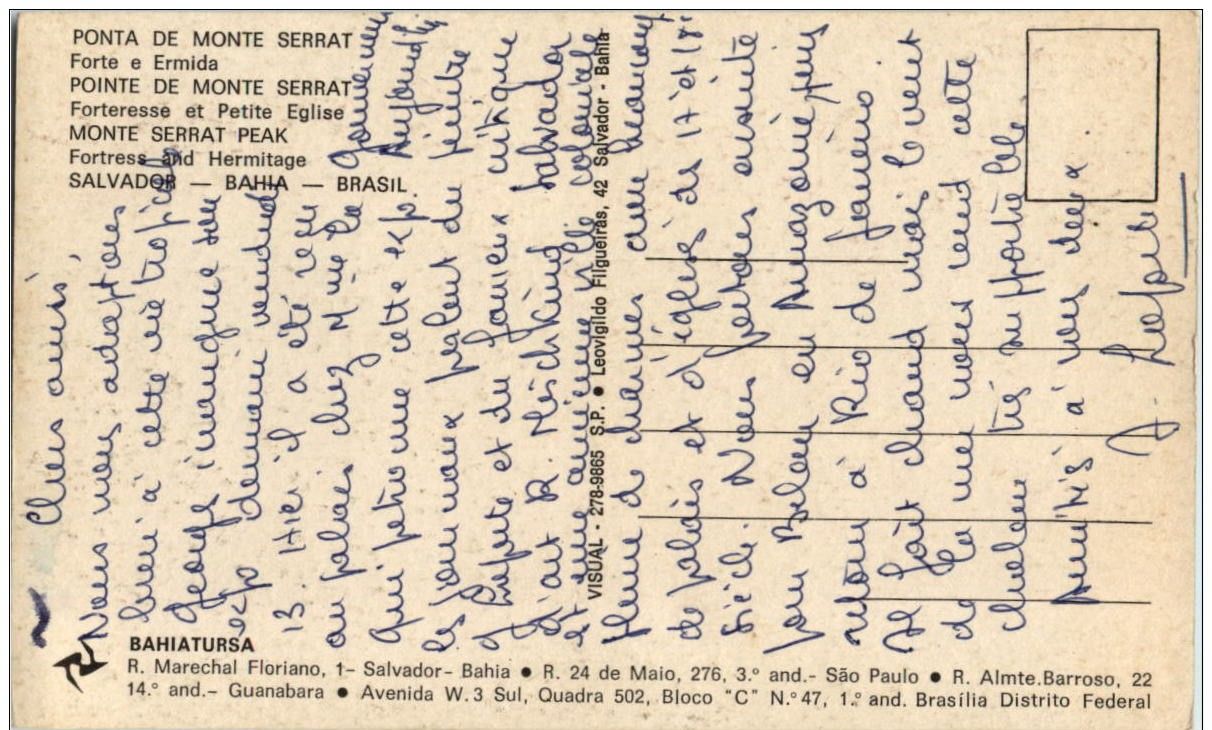 PONTA DE MONTE SERRAT
Forte e Ermida
POINTE DE MONTE SERRAT
Forteresse et Petite Eglise
MONTE SERRAT PEAK
Fortress and Hermitage
SALVADOR — BAHIA — BRASIL
Chers amis,
Nous nous adaptons
bien à cette vie tropicale
George inaugure son
exp demain vendredi
13. Hier il a été reçu
au palais chez Mme la
qui patronne cette exp.
les journaux parlent du peintre
et du fameux critique
d'art R. Salvador
est une ancienne ville coloniale
pleine de charmes avec beaucoup
de palais et d'églises du 17 et 18
siècle. Nous partons ensuite
pour Belem en Amazonie, puis
retour à Rio de Janeiro
Il fait chaud mais le vent
de la mer nous rend cette
chaleur très supportable
Amitiés à vous deux
VISUAL - 278-9865 S.P. ● Leovigildo Filgueiras, 42 Salvador - Bahia
BAHIATURSA
R. Marechal Floriano, 1- Salvador- Bahia ● R. 24 de Maio, 276, 3.º and.- São Paulo ● R. Almte.Barroso, 22
14.º and.- Guanabara ● Avenida W.3 Sul, Quadra 502, Bloco "C" N.º 47, 1.º and. Brasília Distrito Federal